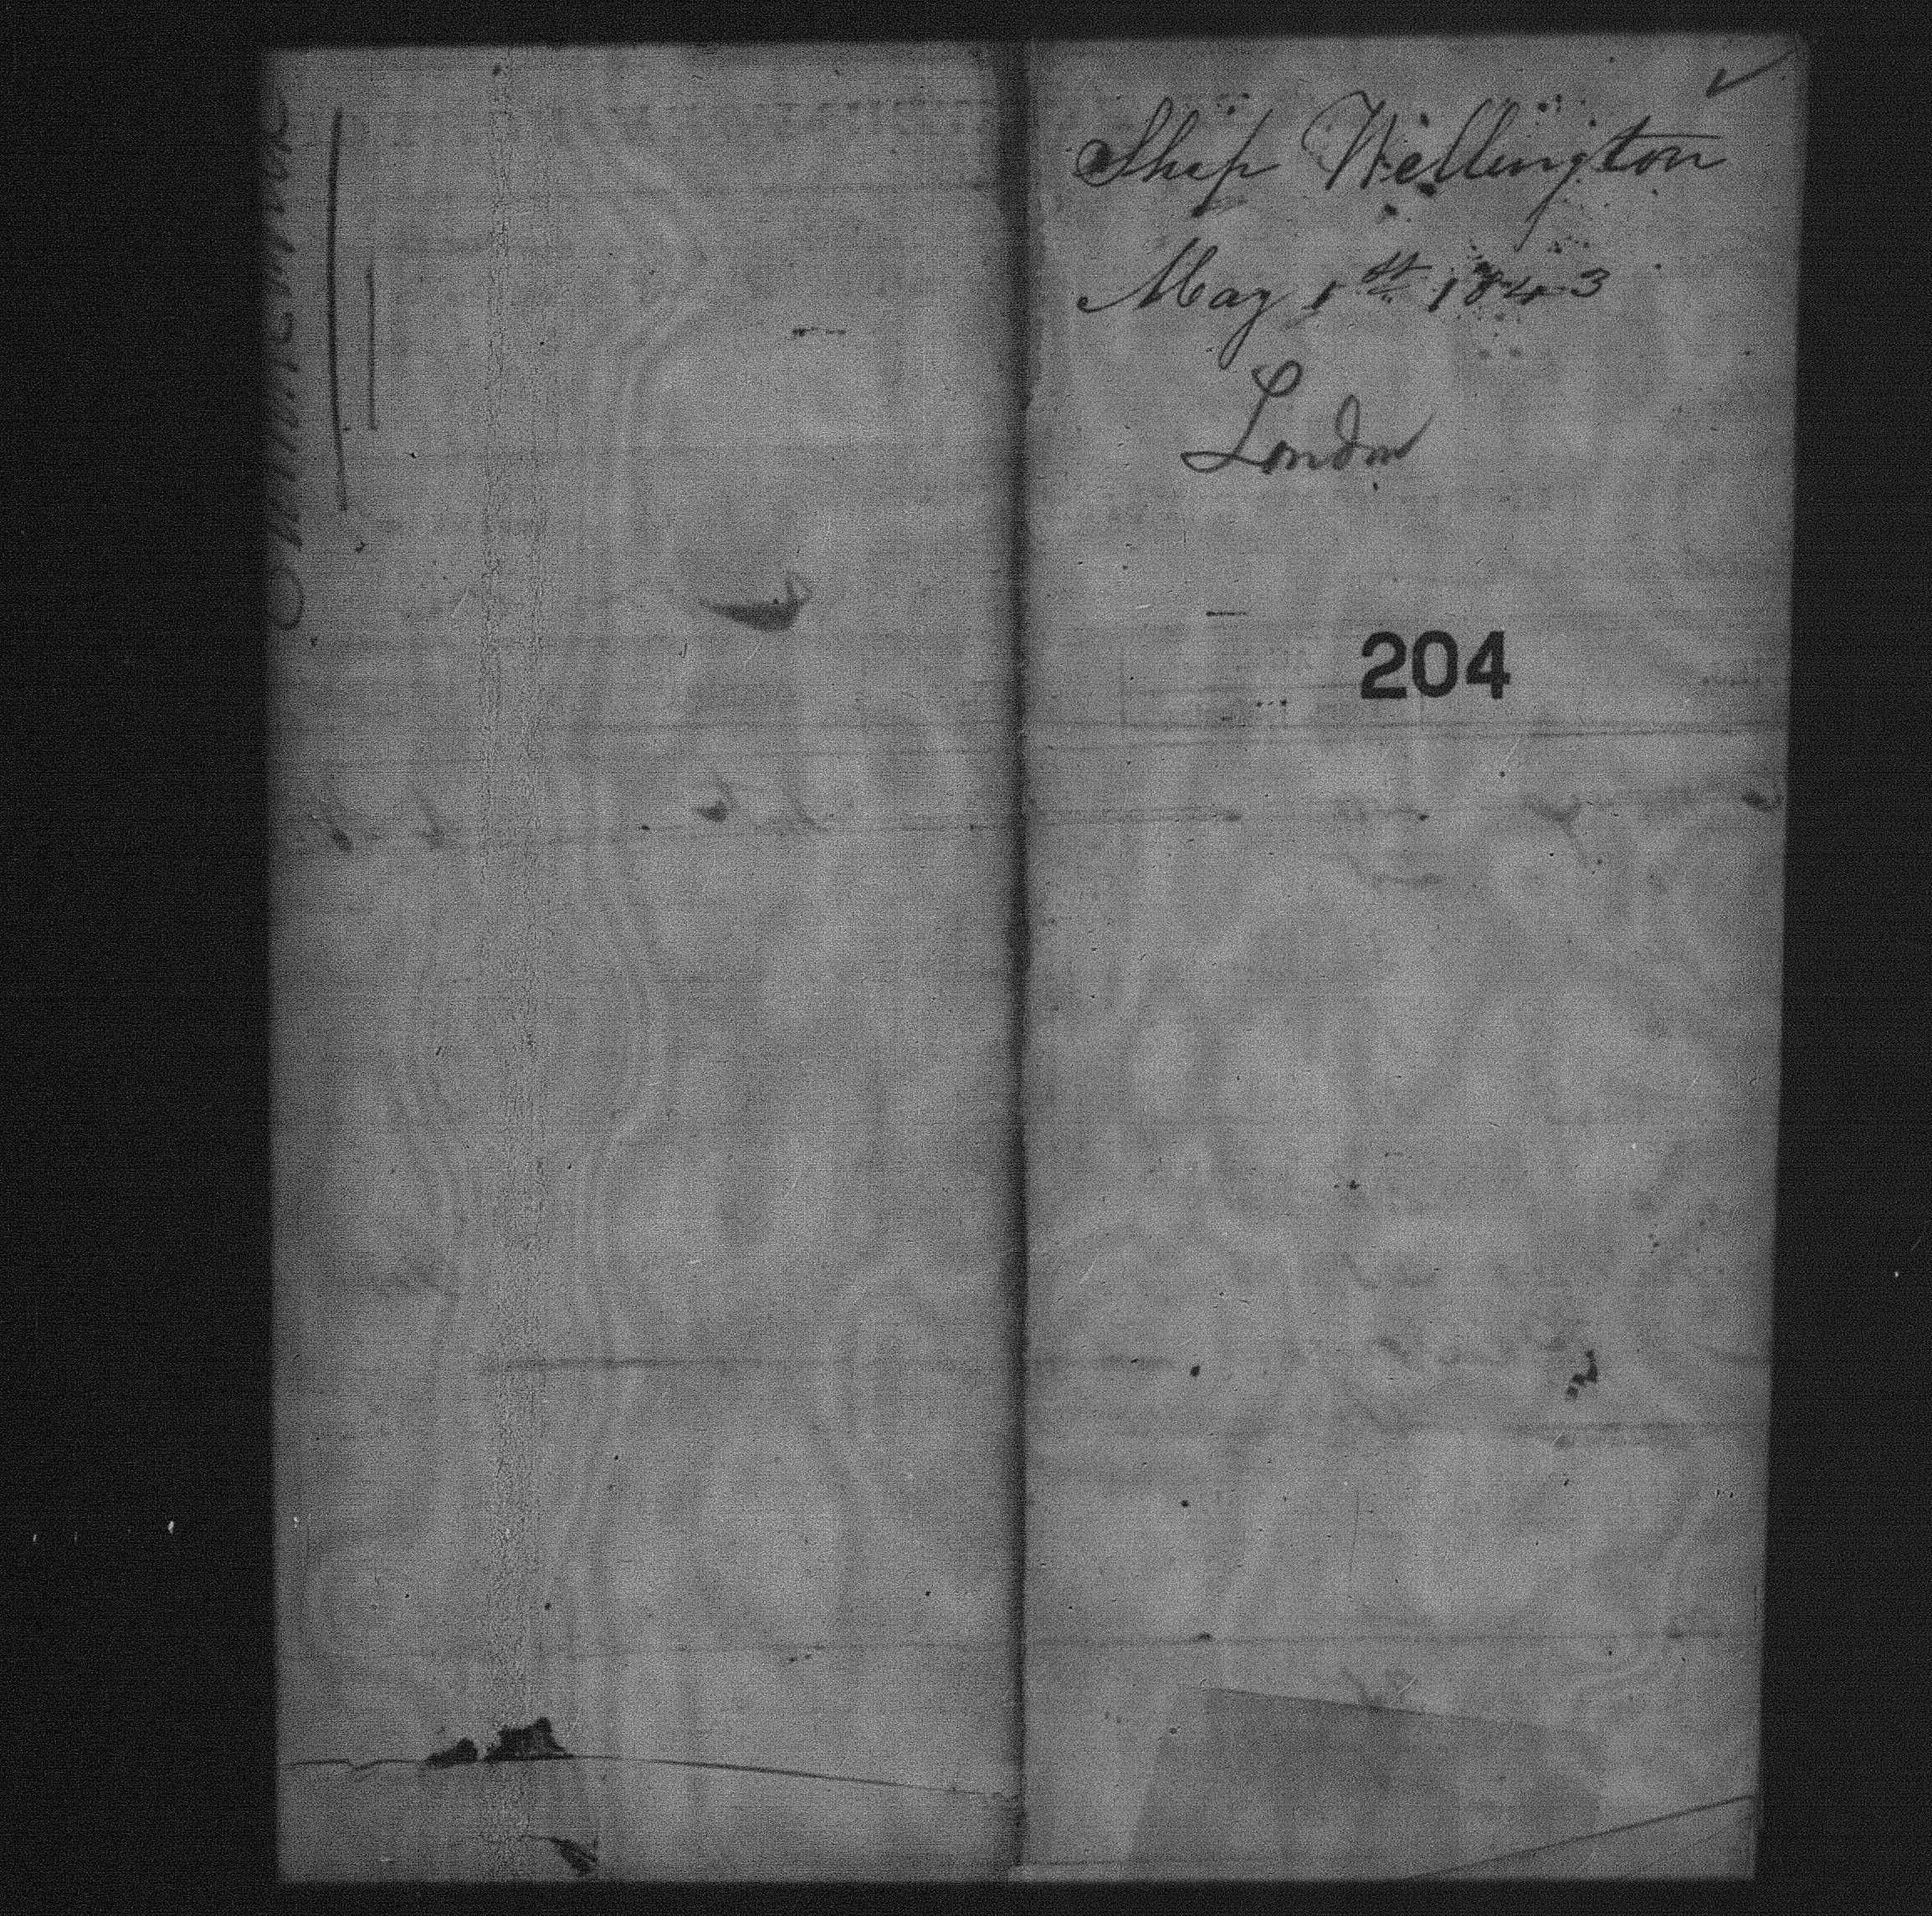 Ship Wellington
May 1st 1843
London
204